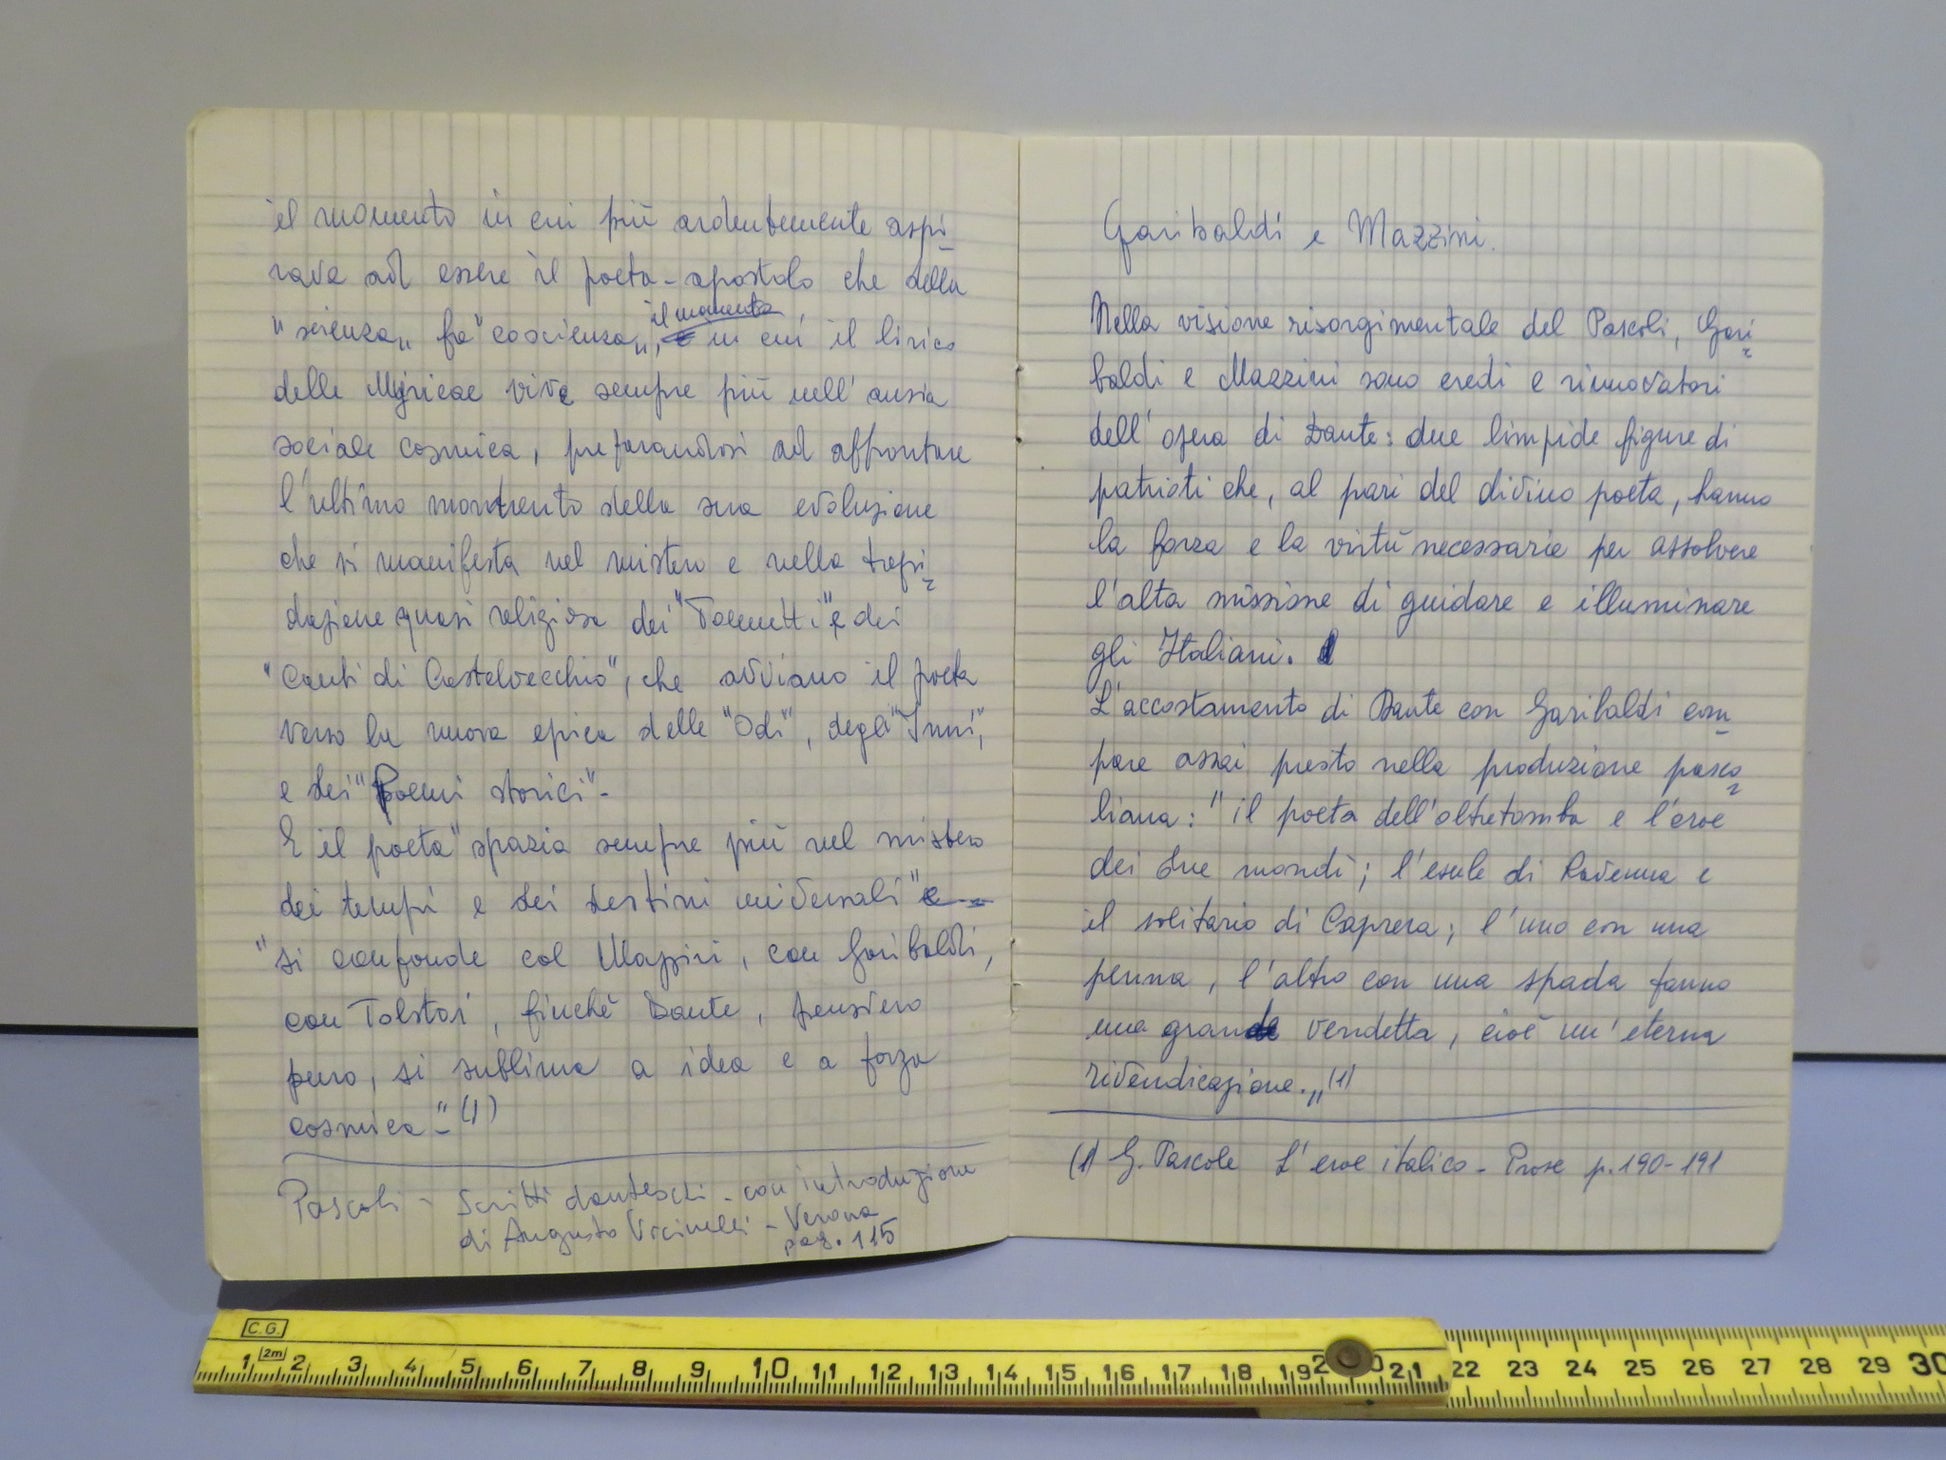 il momento in cui più ardentemente aspi-
rava ad essere il poeta-apostolo che della
il momento
"scienza„ fa "coscienza„, in cui il lirico
delle Myricae vive sempre più nell'ansia
sociale cosmica, preparandosi ad affrontare
l'ultimo momento della sua evoluzione
che si manifesta nel mistero e nella trepi-
dazione quasi religiosa dei "Poemetti" e dei
"Canti di Castelvecchio", che avviano il poeta
verso la nuova epica delle "Odi", degli "Inni",
e dei "Poemi storici"-
E il poeta "spazia sempre più nel mistero
dei tempi e dei destini universali"
"si confonde col Mazzini, con Garibaldi,
con Tolstoi, finché Dante, pensiero
puro, si sublima a idea e a forza
cosmica-"(1)
Pascoli - Scritti danteschi - con introduzione
di Augusto Vicinelli - Verona
pag. 115
Garibaldi e Mazzini.
Nella visione risorgimentale del Pascoli, Gari-
baldi e Mazzini sono eredi e rinnovatori
dell'opera di Dante: due limpide figure di
patrioti che, al pari del divino poeta, hanno
la forza e la virtù necessarie per assolvere
l'alta missione di guidare e illuminare
gli Italiani.
L'accostamento di Dante con Garibaldi com-
pare assai presto nella produzione pasco-
liana: "il poeta dell'oltretomba e l'eroe
dei due mondi; l'esule di Ravenna e
il solitario di Caprera; l'uno con una
penna, l'altro con una spada fanno
una grande vendetta, cioè un'eterna
rivendicazione.„(1)
(1) G. Pascole L'eroe italico - Prose p.190-191
C.G.
2m
1 2 3 4 5 6 7 8 9 10 11 12 13 14 15 16 17 18 19 20 21 22 23 24 25 26 27 28 29 30